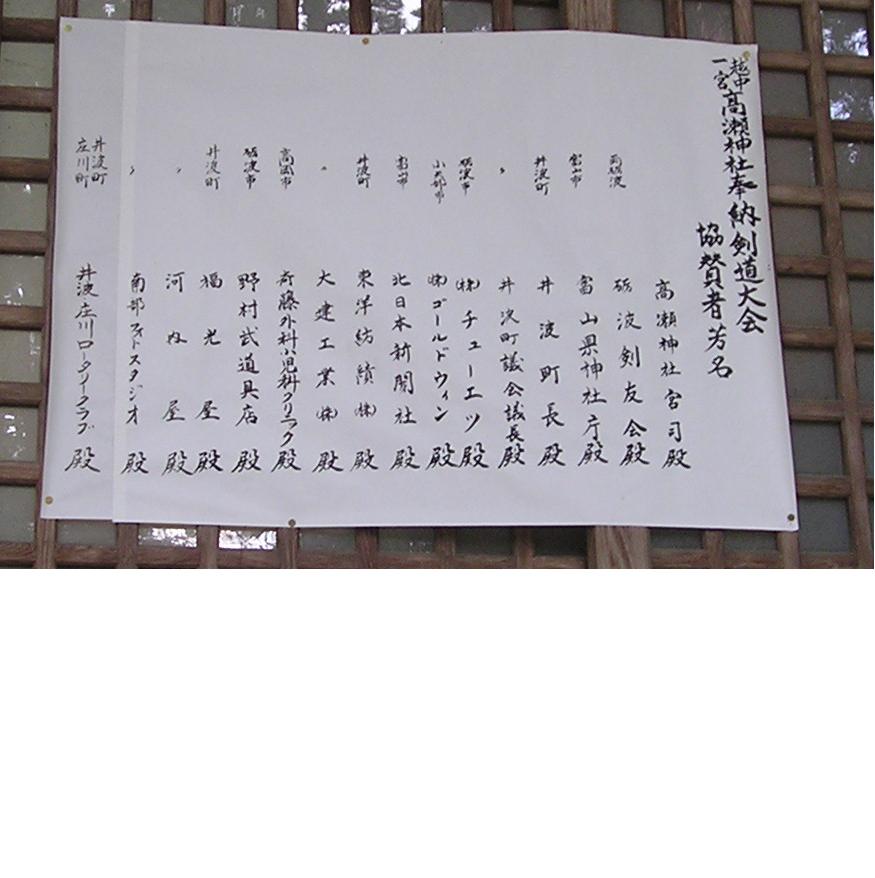 越中一宮 高瀬神社奉納剣道大会
協賛者芳名
高瀬神社宮司殿
南砺波 砺波剣友会殿
富山市 富山県神社庁殿
井波町 井波町長殿
〃 井波町議会議長殿
砺波市 (株)チューエツ殿
小矢部市 (株)ゴールドウィン殿
富山市 北日本新聞社殿
井波町 東洋紡績(株)殿
〃 大建工業(株)殿
高岡市 斉藤外科小児科クリニック殿
砺波市 野村武道具店殿
井波町 福光屋殿
〃 河内屋殿
〃 南部フォトスタジオ殿
井波町 庄川町 井波庄川ロータリークラブ殿